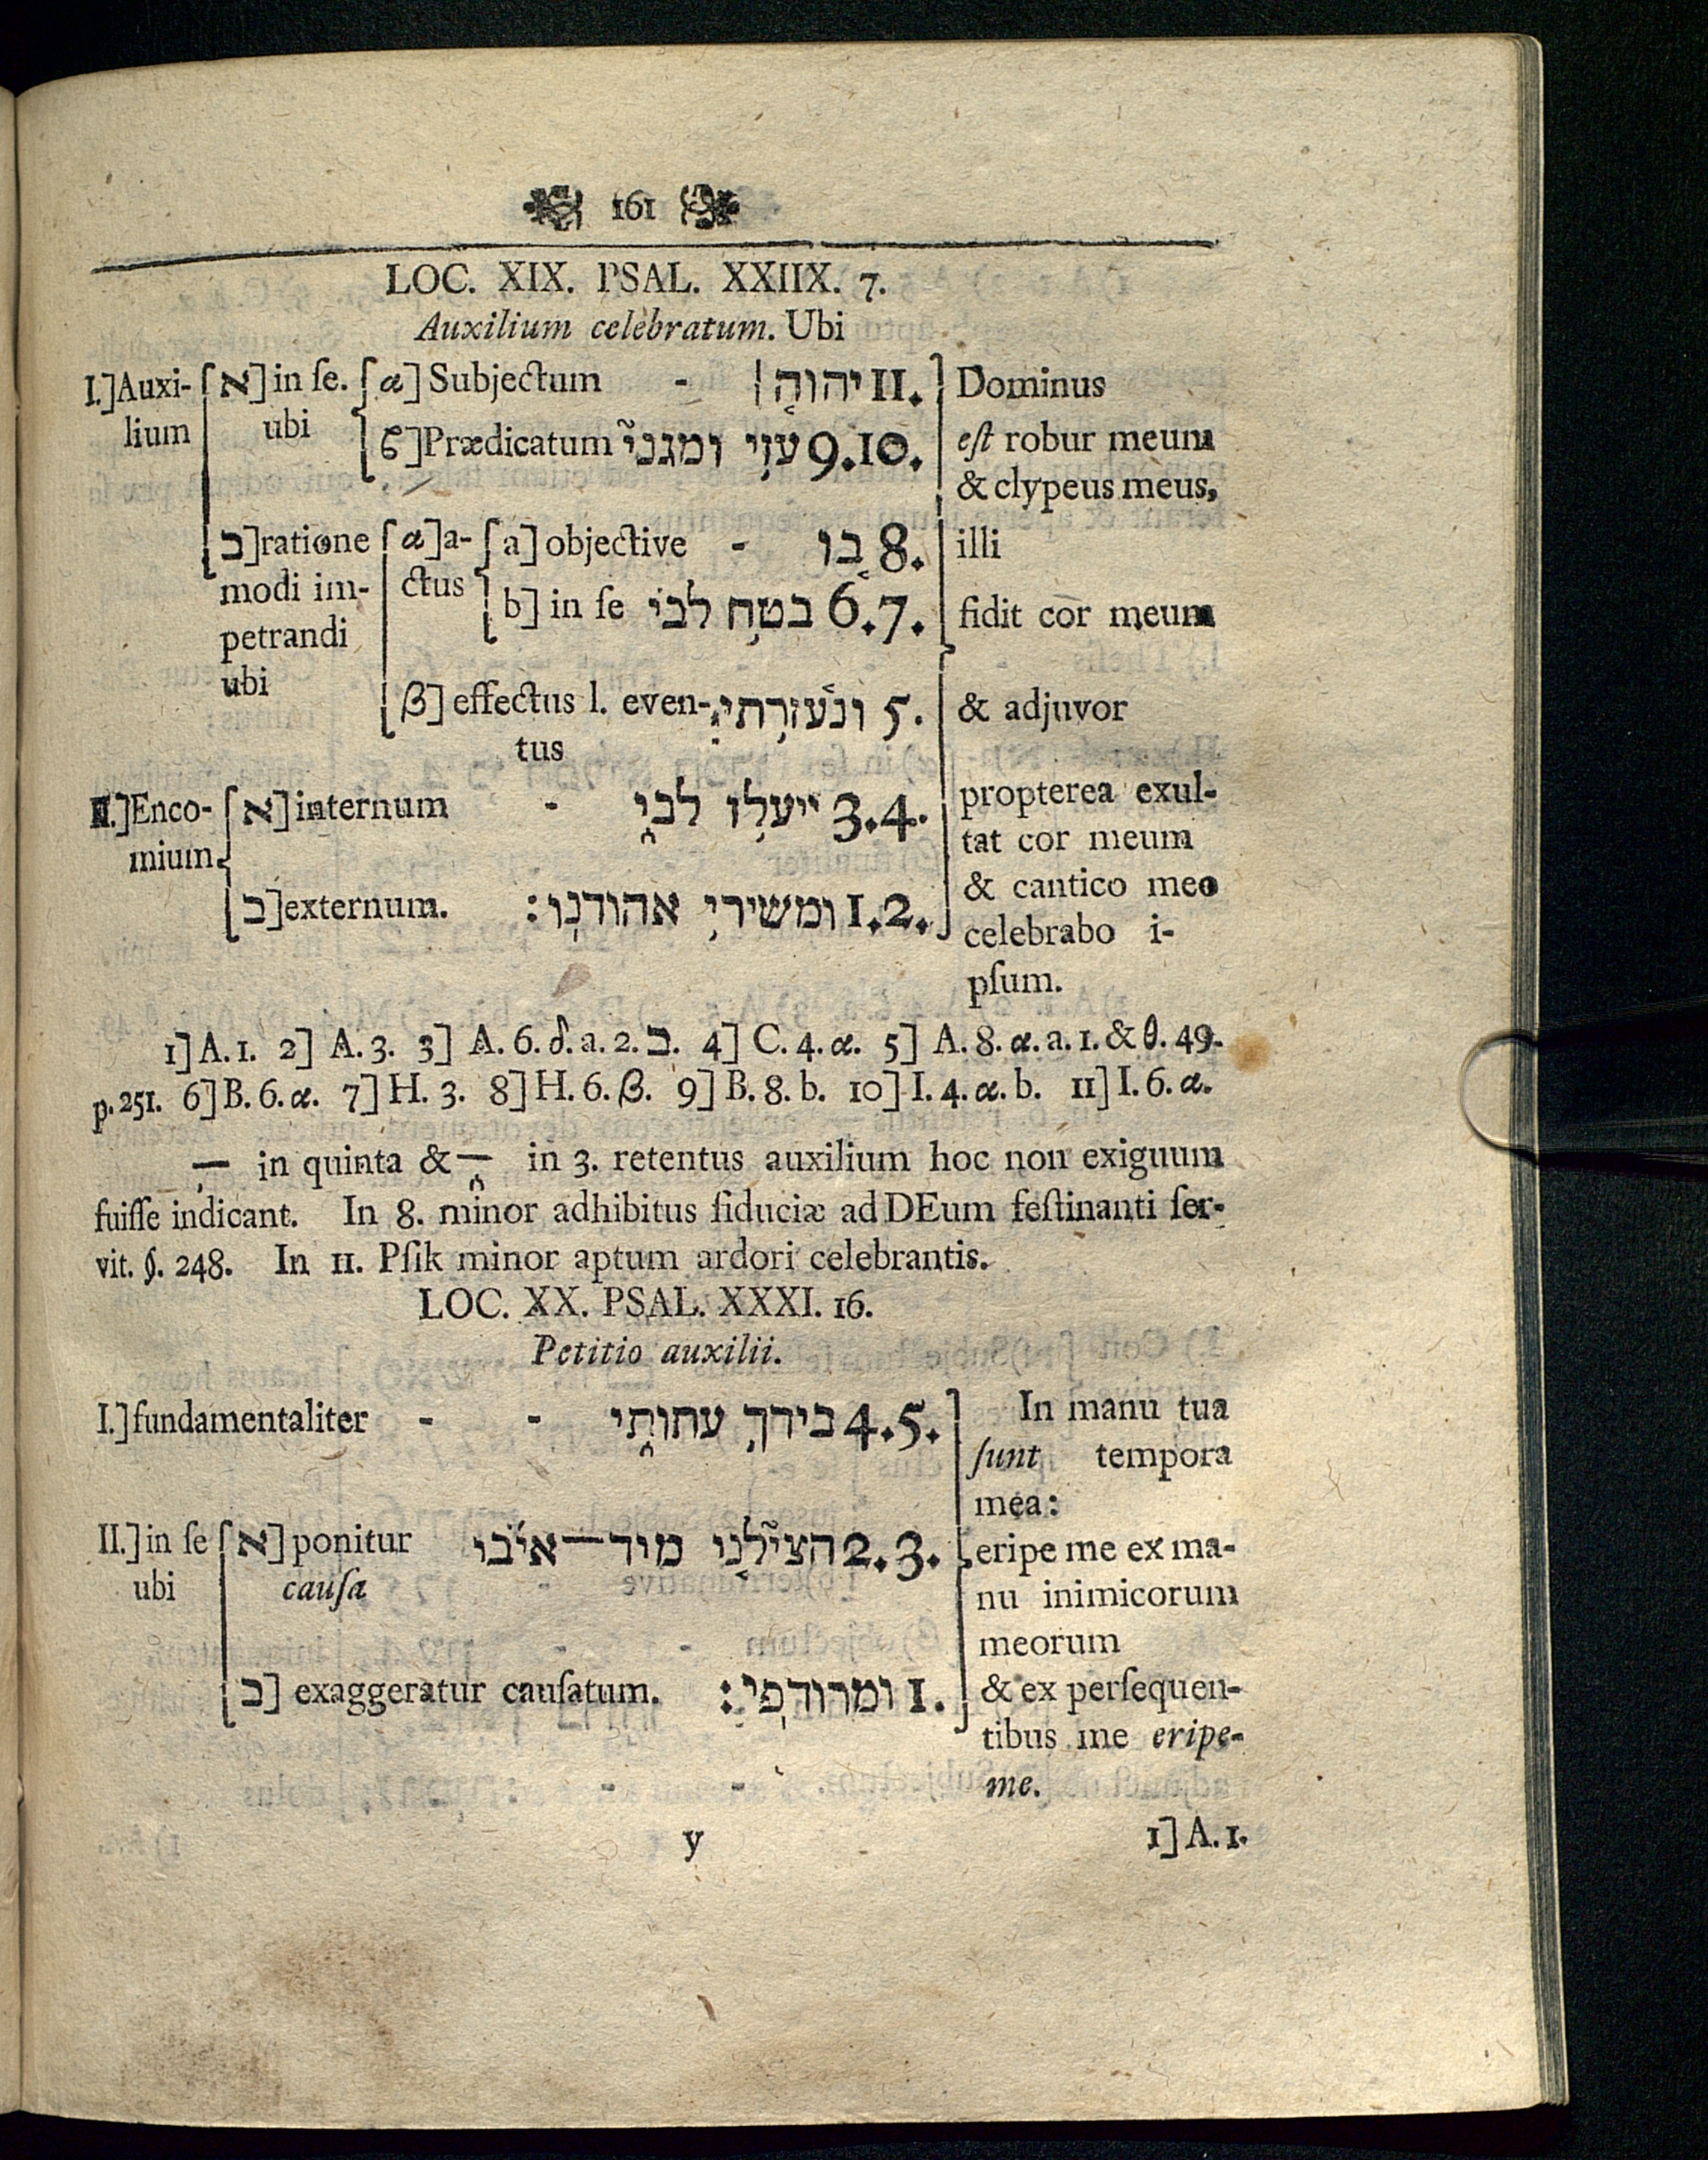 161
LOC. XIX. PSAL. XXIIX. 7.
Auxilium celebratum. Ubi
I.]Auxi- א] in ſe. α] Subjectum - 11. יהוה׀ Dominus
lium ubi ϐ]Prædicatum 9.10. עזי ומגני est robur meum
& clypeus meus,
ב]ratione α]a- a] objective - 8. בו illi
modi im- ctus b] in ſe 6.7. בטח לבי fidit cor meum
petrandi
ubi β] effectus l. even- 5. ונעזרתי & adjuvor
tus
II.]Enco- א]internum - 3.4. ייעלו לבי propterea exul-
mium tat cor meum
ב]externum. 1.2. ומשירי אהודנו: & cantico meo
celebrabo i-
pſum.
1] A. 1. 2] A. 3. 3] A. 6. δ. a. 2. ב. 4] C. 4. α. 5] A. 8. α. a. 1. & θ. 49.
p. 251. 6] B. 6. α. 7] H. 3. 8] H. 6. β. 9] B. 8. b. 10] I. 4. α. b. 11] I. 6. α.
in quinta & in 3. retentus auxilium hoc non exiguum
fuiſſe indicant. In 8. minor adhibitus fiduciæ ad DEum feſtinanti ſer-
vit. §. 248. In 11. Pſik minor aptum ardori celebrantis.
LOC. XX. PSAL. XXXI. 16.
Petitio auxilii.
I.] fundamentaliter - - 4.5. בידך עתותי In manu tua
ſunt tempora
mea:
II.] in ſe א] ponitur 2.3. הצילנו מיד—איבו eripe me ex ma-
ubi cauſa nu inimicorum
meorum
ב] exaggeratur cauſatum. 1. ומרודפי: & ex perſequen-
tibus me eripe-
me.
y 1] A. 1.